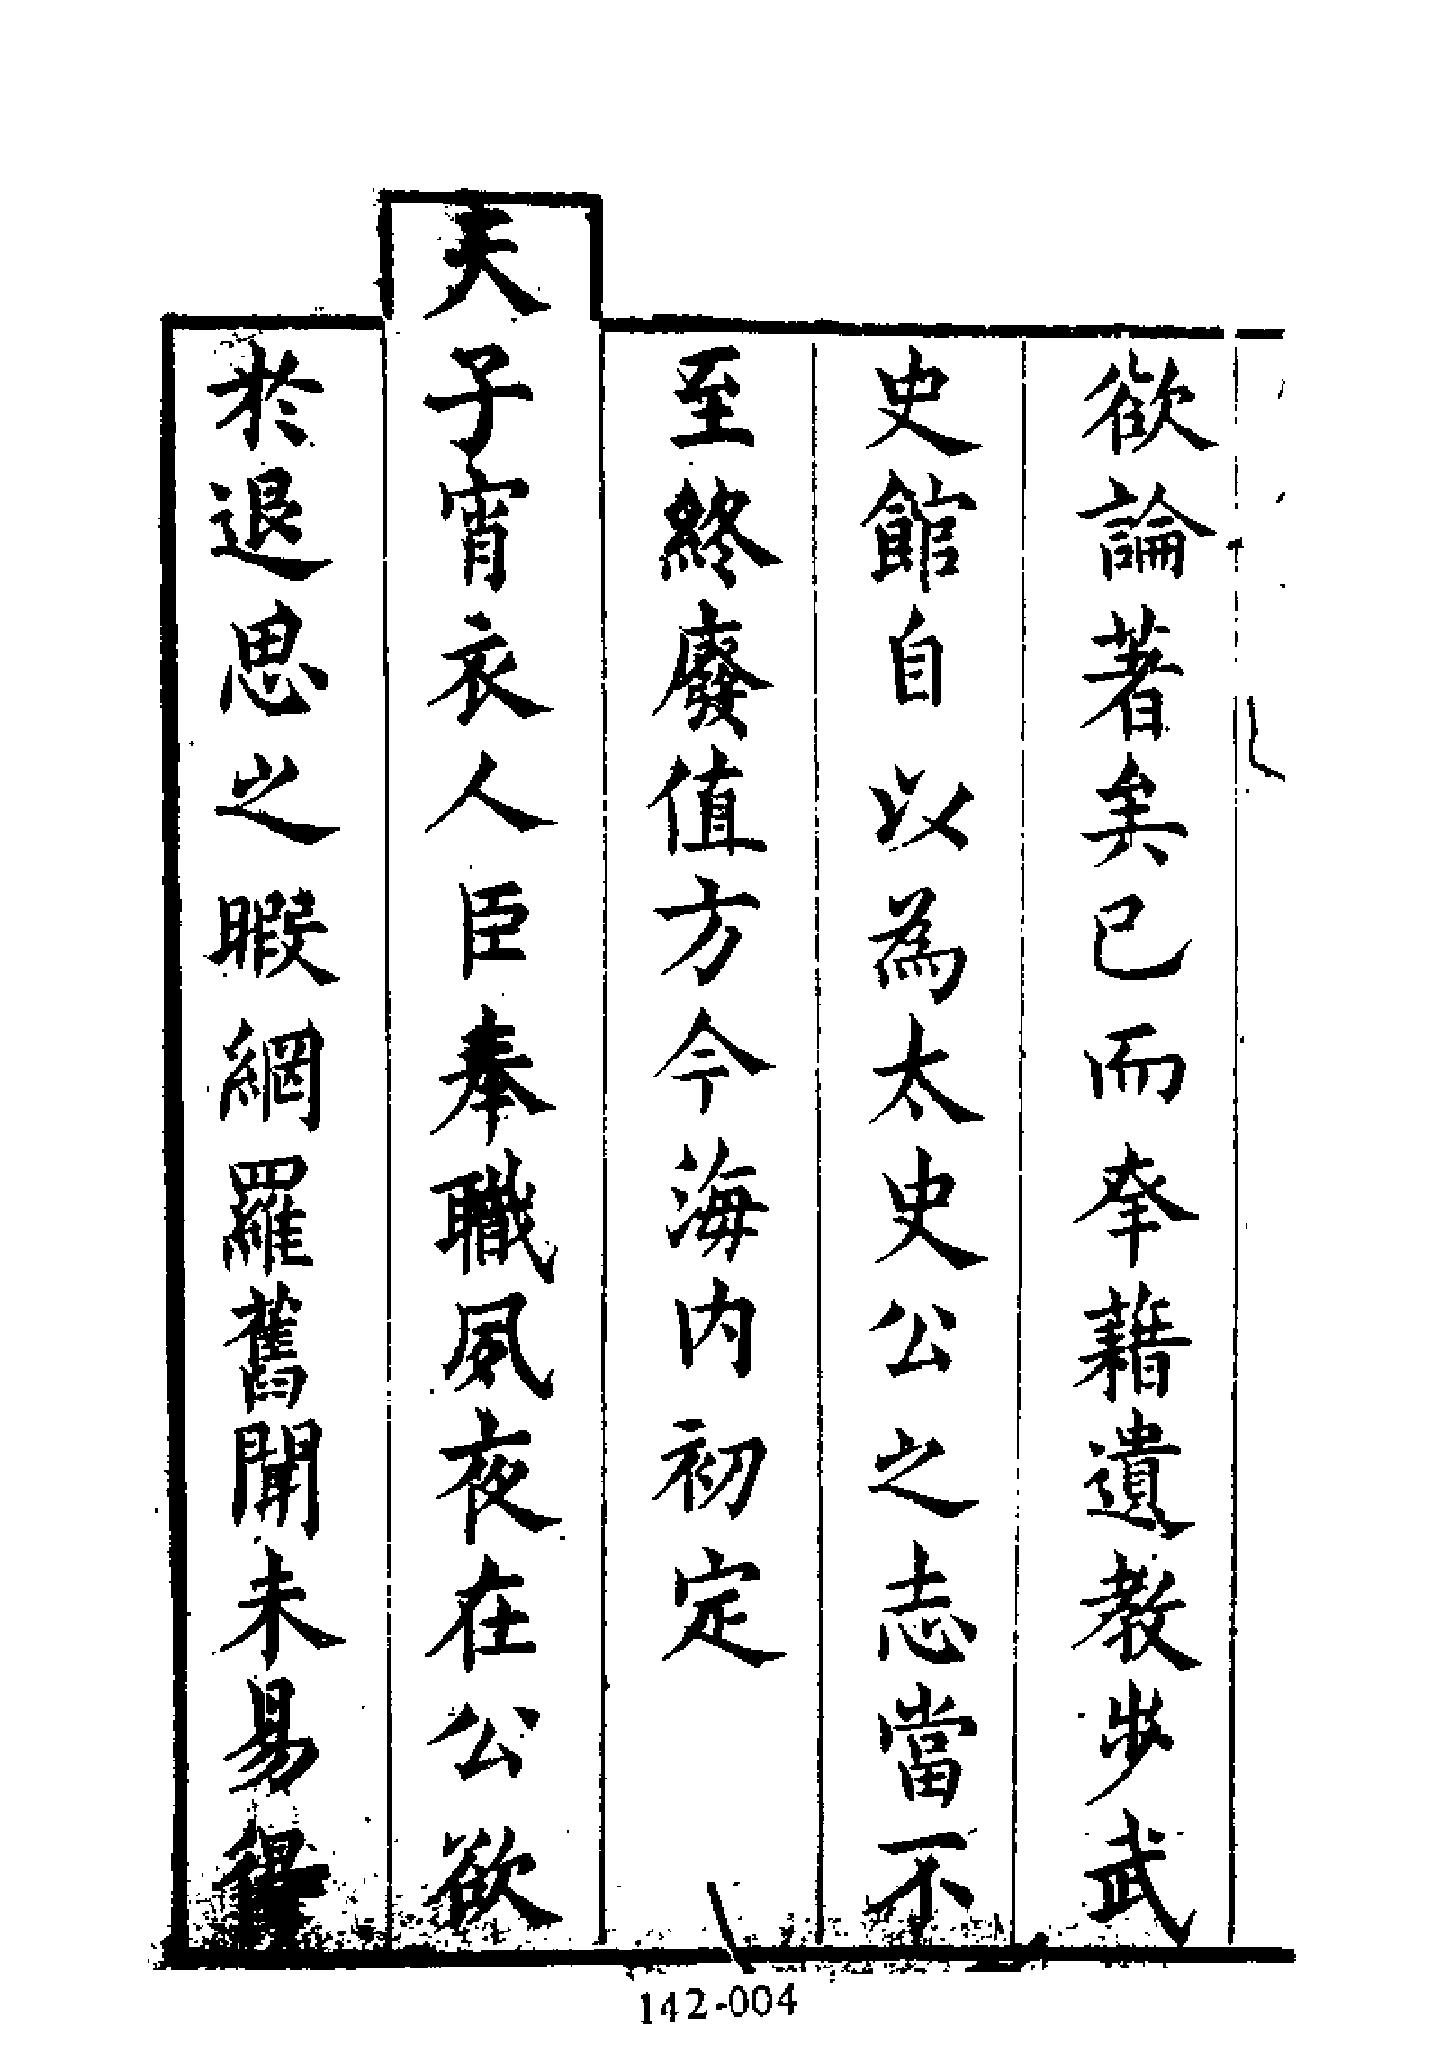 欲論著矣已而奉藉遺教步武
史館自以為太史公之志當不
至終廢值方今海内初定
天子宵衣人臣奉職夙夜在公欲
於退思之暇網羅舊聞未易得
142-004